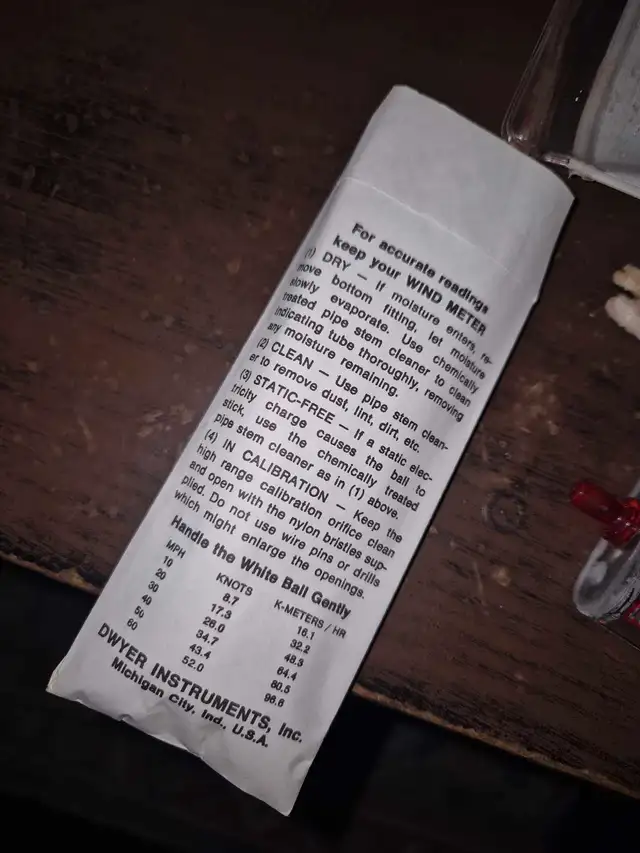 For accurate readings
keep your WIND METER
(1) DRY — If moisture enters, re-
move bottom fitting, let moisture
slowly evaporate. Use chemically
treated pipe stem cleaner to clean
indicating tube thoroughly, removing
any moisture remaining.
(2) CLEAN — Use pipe stem clean-
er to remove dust, lint, dirt, etc.
(3) STATIC-FREE — If a static elec-
tricity charge causes the ball to
stick, use the chemically treated
pipe stem cleaner as in (1) above.
(4) IN CALIBRATION — Keep the
high range calibration orifice clean
and open with the nylon bristles sup-
plied. Do not use wire pins or drills
which might enlarge the openings.
Handle the White Ball Gently
MPH KNOTS K-METERS / HR
10 8.7 16.1
20 17.3 32.2
30 26.0 48.3
40 34.7 64.4
50 43.4 80.5
60 52.0 96.6
DWYER INSTRUMENTS, Inc.
Michigan City, Ind., U.S.A.